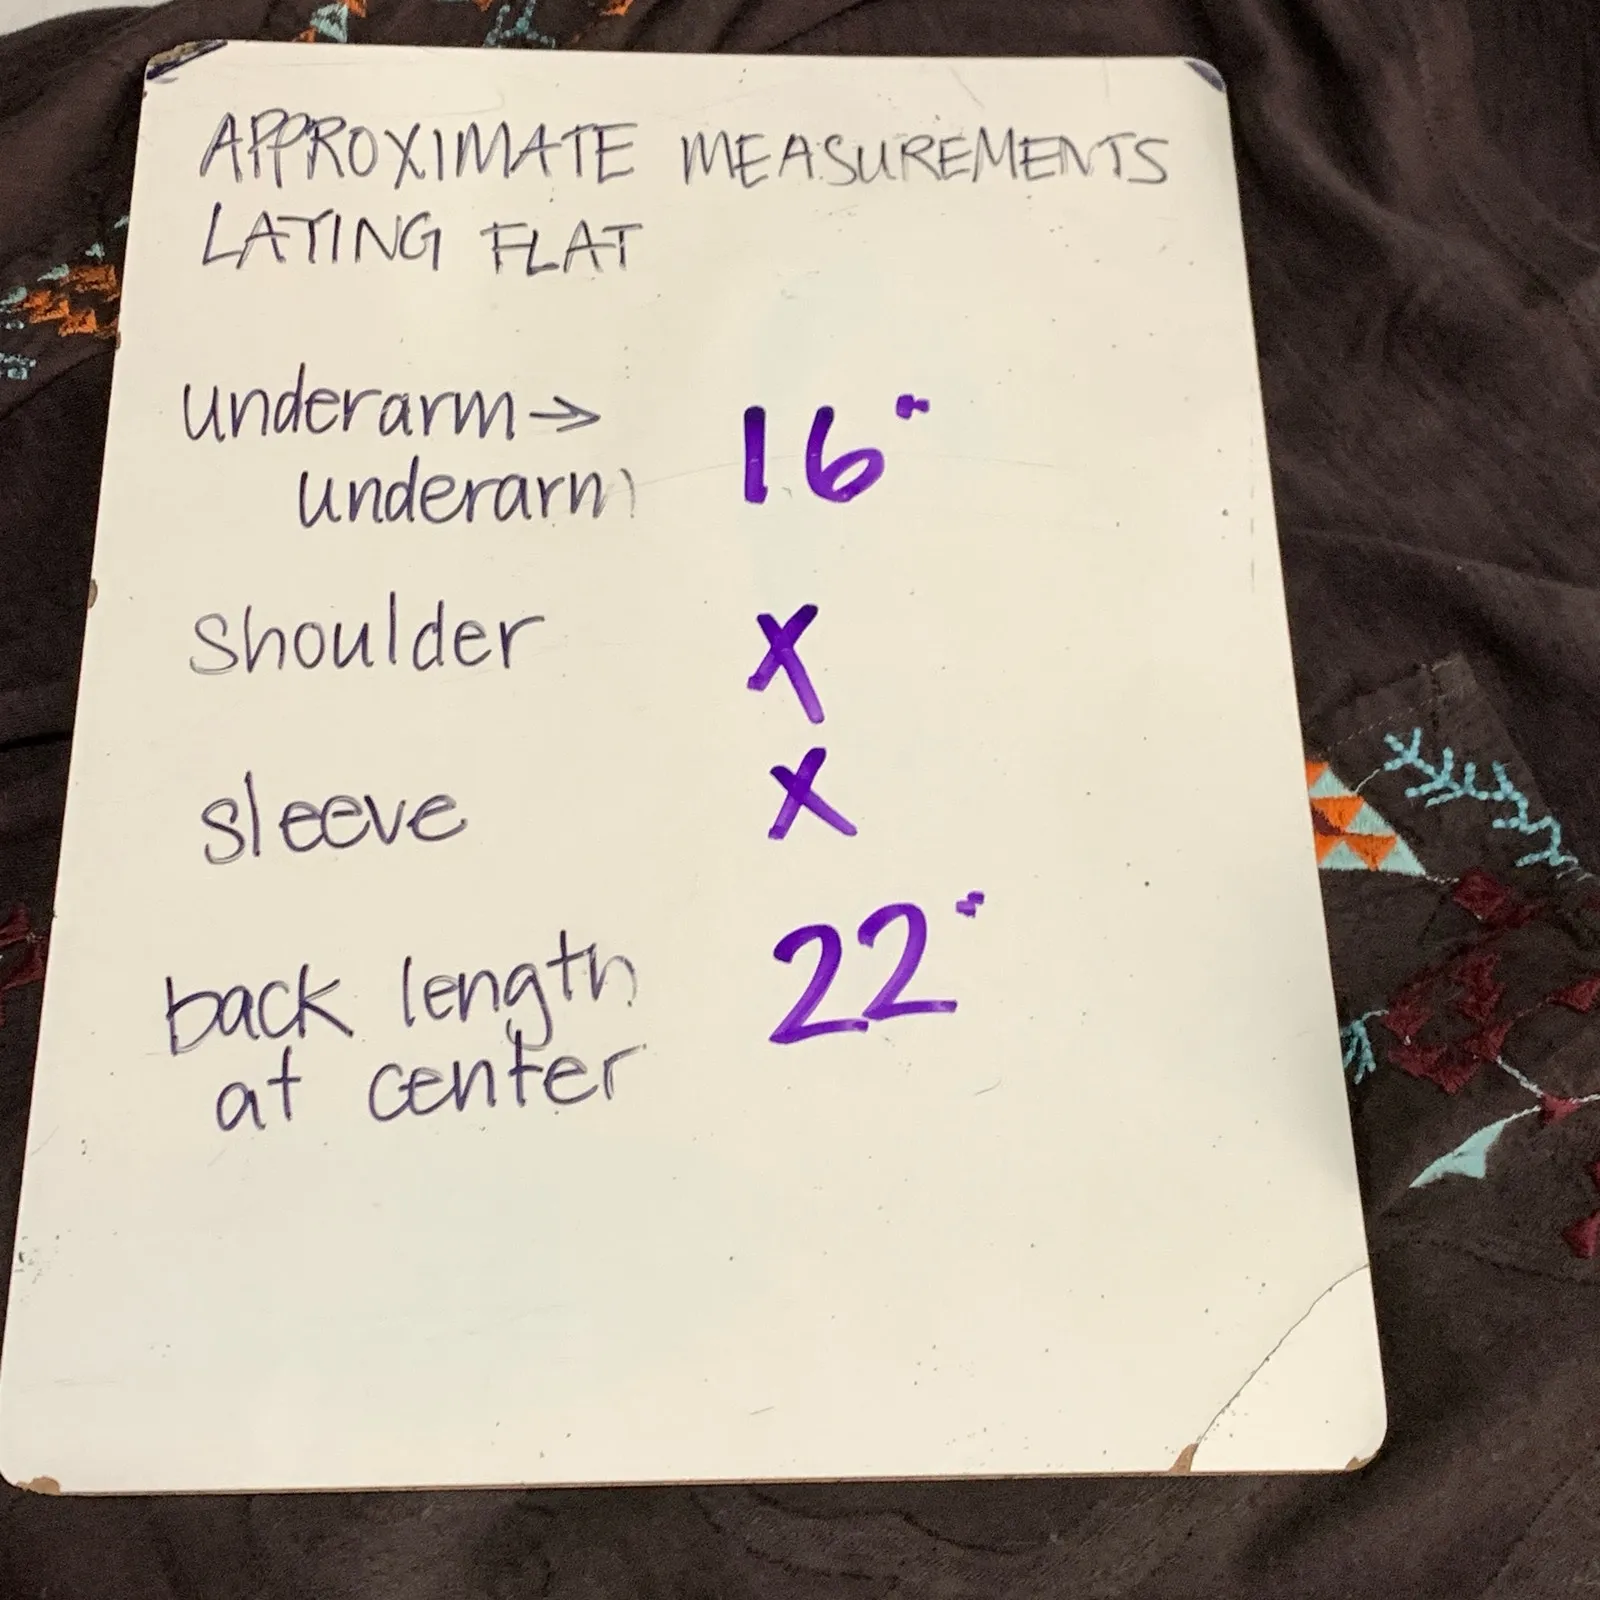 APPROXIMATE MEASUREMENTS
LAYING FLAT
underarm → 16"
underarm
shoulder X
sleeve X
back length 22"
at center